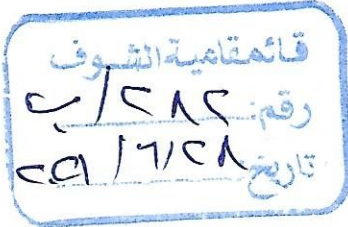 قائمقامية الشوف
رقم: ٢٨٢/ب
تاريخ: ٢٨/٦/